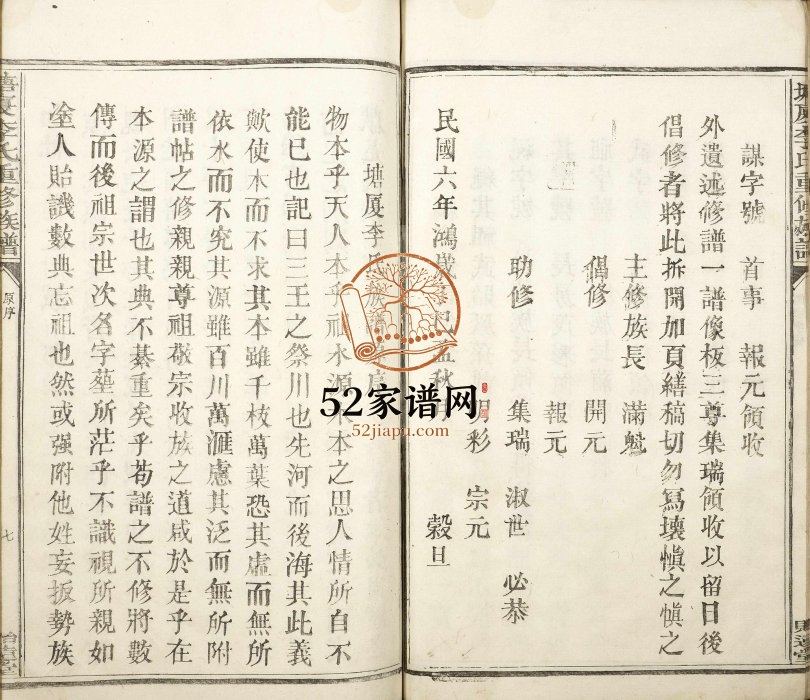 謀字號　首事　報元領收
外遺述修譜一譜像板三尊集瑞領收以留日後
倡修者將此拆開加頁繕稿切勿寫壞慎之慎之
主修族長　滿魁
倡修　開元
報元
助修　集瑞　淑世　必恭
明彩　宗元
民國六年鴻歲　巳孟秋月　穀旦
塘厦李氏族　序
物本乎天人本乎祖水源木本之思人情所自不
能已也記曰三王之祭川也先河而後海其此義
歟使木而不求其本雖千枝萬葉恐其虛而無所
依水而不究其源雖百川萬滙慮其泛而無所附
譜帖之修親親尊祖敬宗收族之道咸於是乎在
本源之謂也其典不綦重矣乎苟譜之不修將數
傳而後祖宗世次名字塟所茫乎不識視所親如
塗人貽譏數典忘祖也然或强附他姓妄扳勢族
塘厦李氏重修族譜
原序
七
52家谱网
52jiapu.com